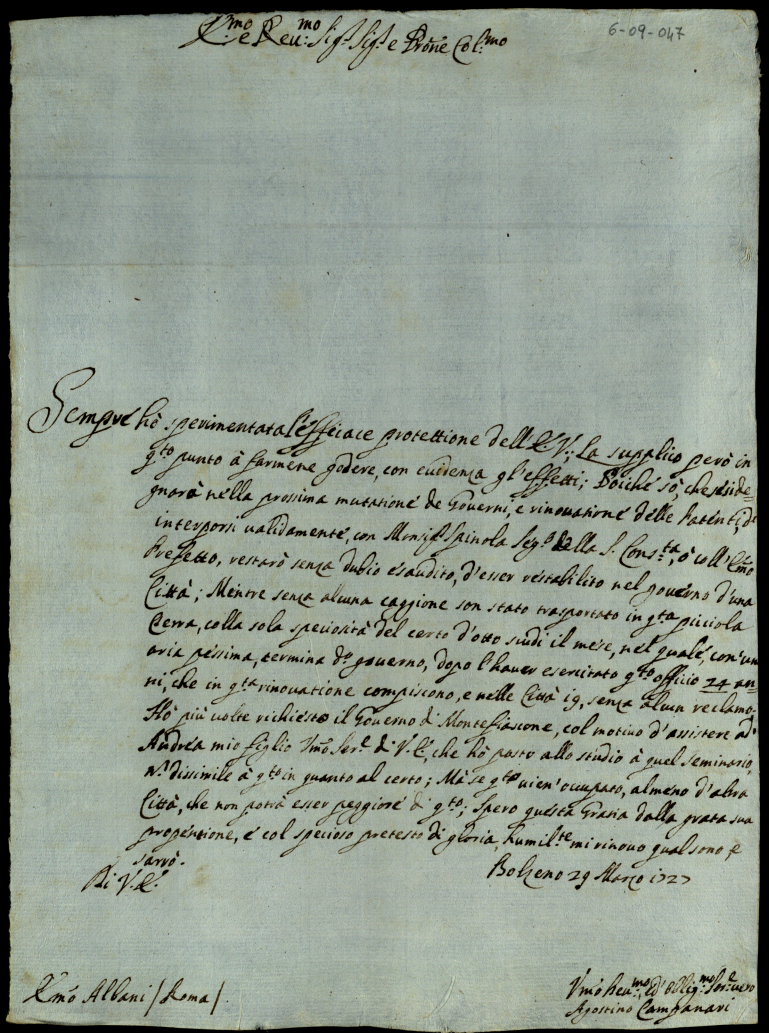 6-09-047
E.mo e Reu:mo Sig.r Sig.r e Prõne Col.mo
Sempre hò sperimentata l'efficace protettione dell'E.V.; La supplico però in
q.to punto à farmene godere, con euidenza gl'effetti; Poiche sò, che se si de=
gnarà nella prossima mutatione de Gouerni, e rinouatione delle Patenti, d'
interporsi ualidamente, con Monsig.r Spinola Seg.o della S. Cons.ta, ò coll'E.mo
Prefetto, restarò senza dubio esaudito, d'esser ristabilito nel gouerno d'una
Città; Mentre senza alcuna caggione son stato trasportato in q.ta picciola
Terra, colla sola speciosità del certo d'otto scudi il mese, nel quale, con un
aria péssima, termina d.o gouerno, dopo l'hauer esercitato q.to officio 24 an=
ni, che in q.ta rinouatione compiscono, e nelle Città 19, senza alcun reclamo.
Hò più uolte richiesto il Gouerno di Montefiascone, col motiuo d'assistere ad
Andrea mio figlio Vmo Ser.e di V.E., che hò posto allo studio à quel Seminario,
n. dissimile à q.to in quanto al certo; Mà se q.to uien' occupato, almeno d'altra
Città, che non potrà esser peggiore di q.to; Spero questa Grazia dalla grata sua
propentione, e col specioso pretesto di gloria, humil.te mi rinouo qual sono, e
sarò.
Di V.E.
Bolseno 29 Marzo 1727
E.mo Albani / Roma /
Vmo Deu.mo, ed' Oblig.mo Ser.e uero
Agostino Campanari